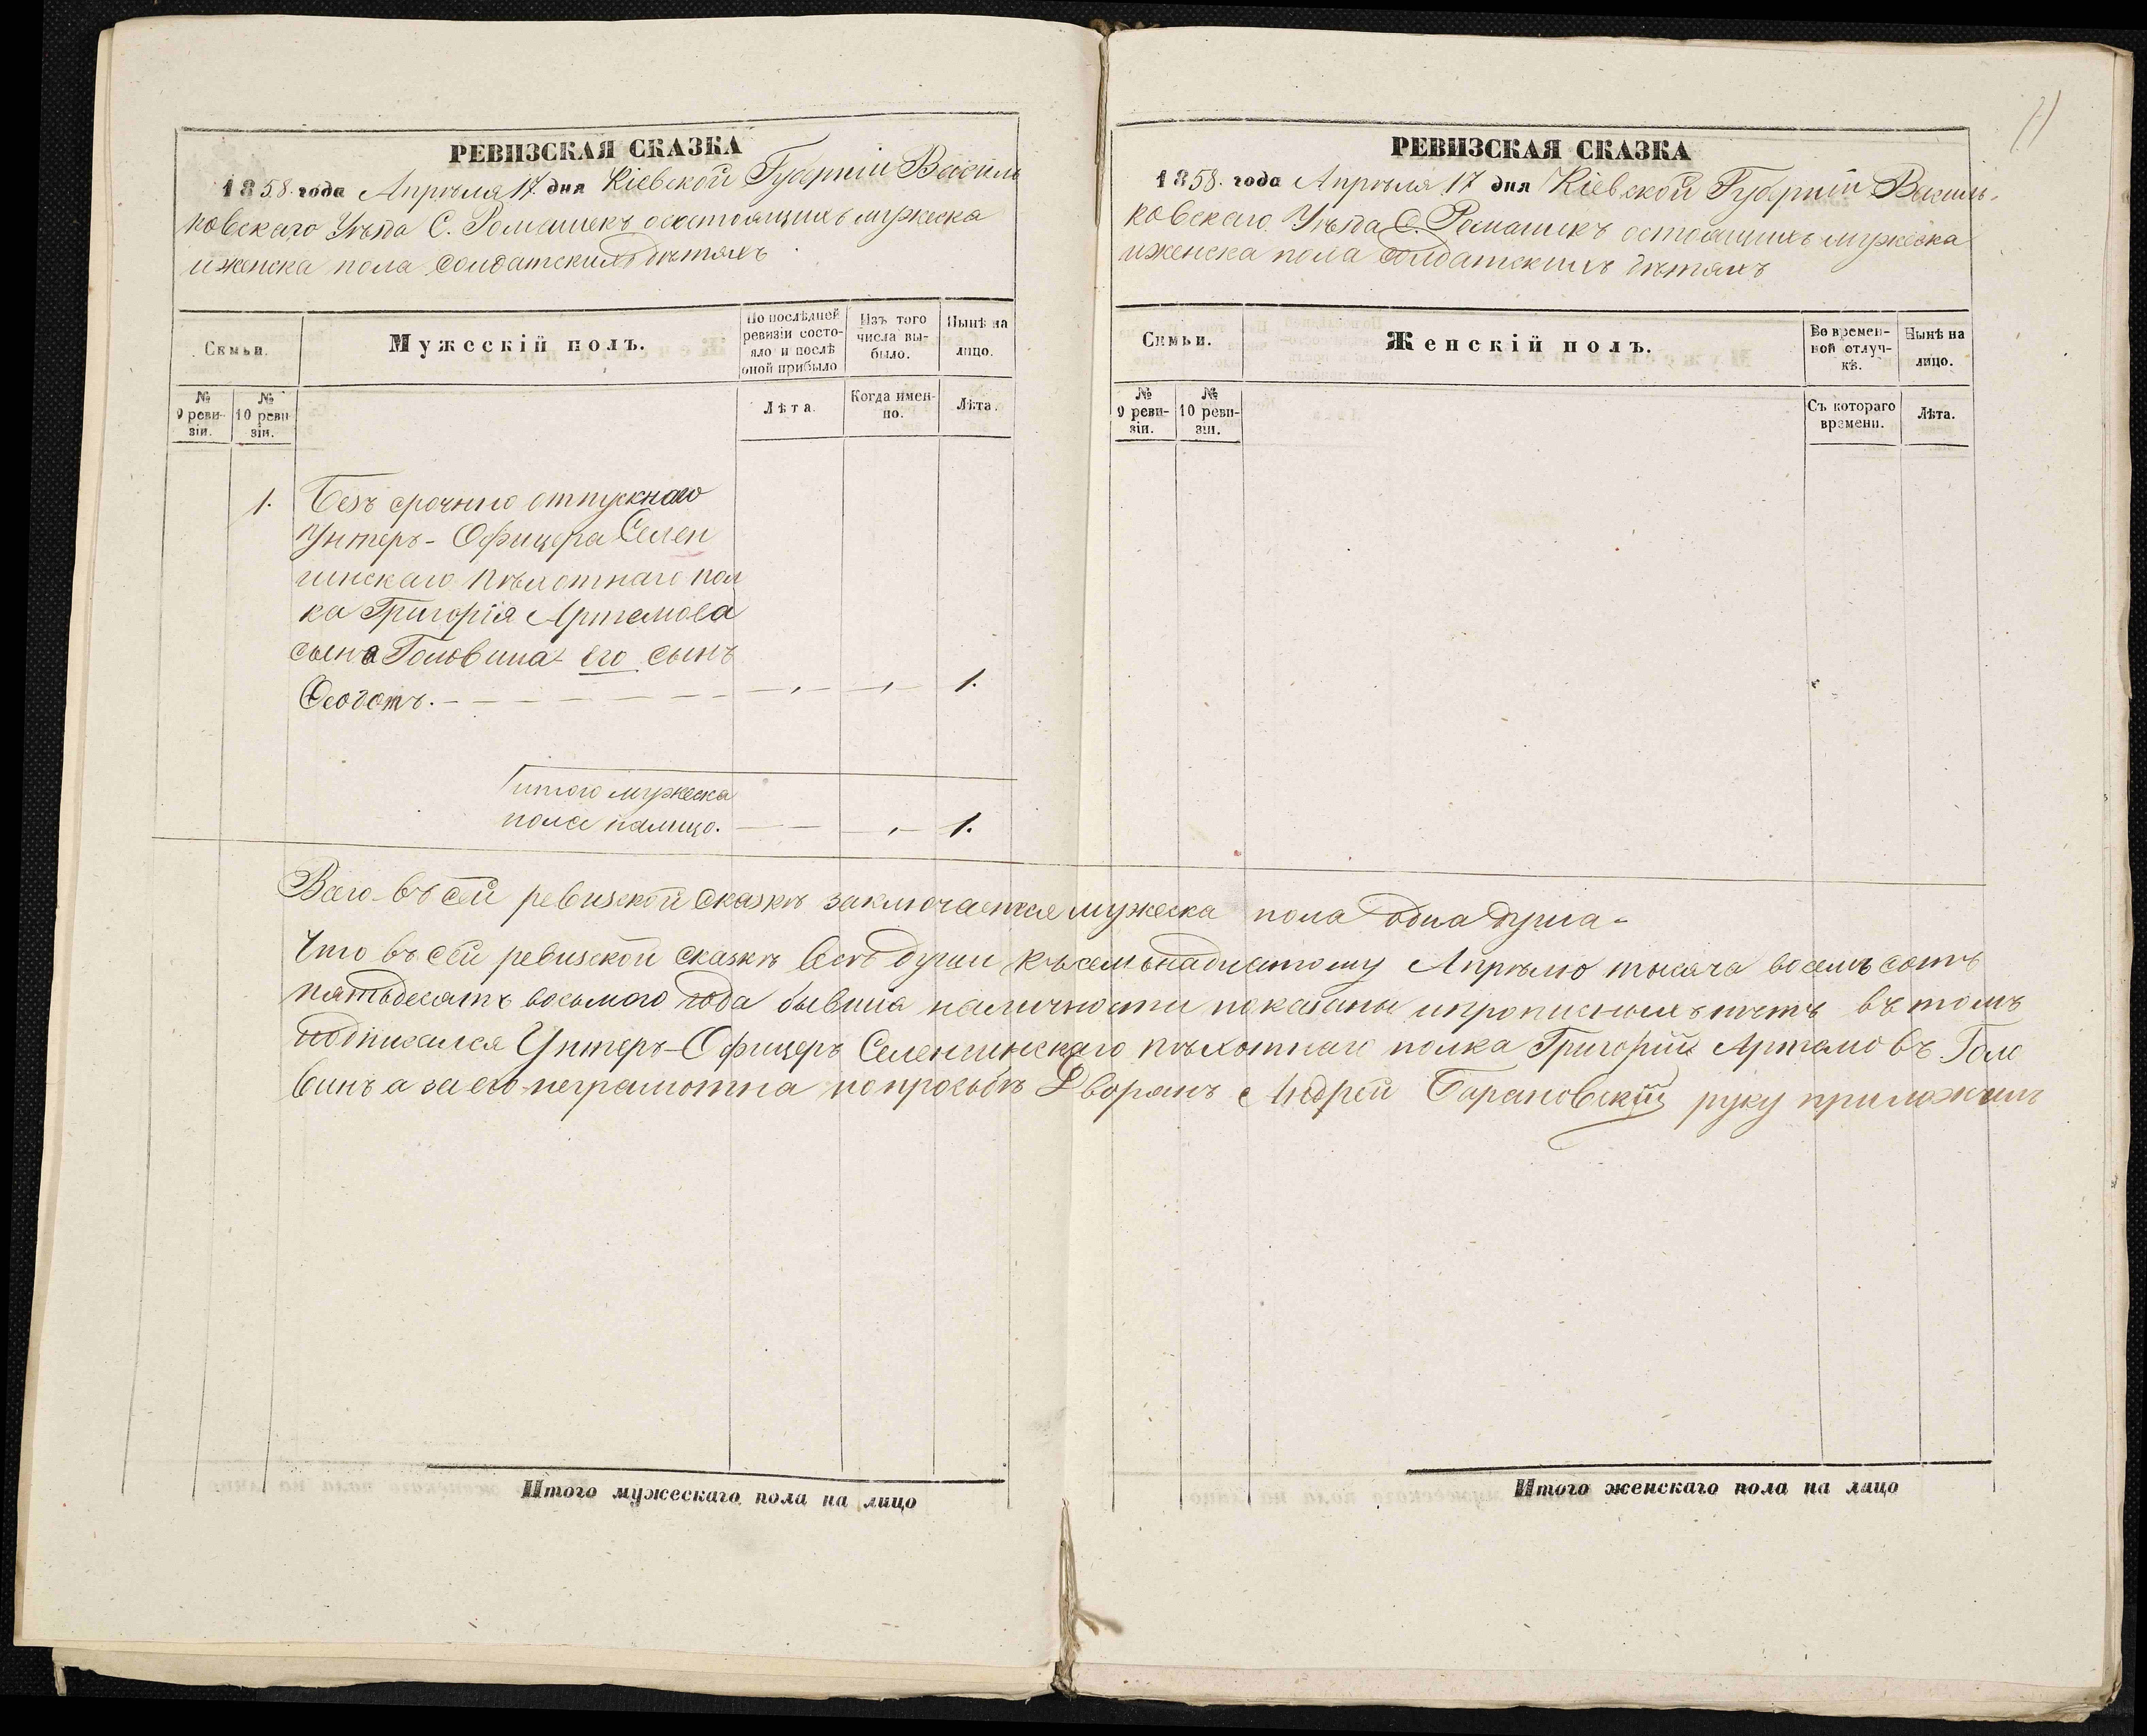 РЕВИЗСКАЯ СКАЗКА
1858. года Апрѣля 17. дня Кіевской Губерніи Василь
ковскаго Уѣзда С. Ромашекъ о состоящихъ мужеска
и женска пола Солдатскихъ дѣтяхъ
Семьи.
Мужескій полъ.
По послѣдней ревизіи состояло и послѣ оной прибыло
Изъ того числа выбыло.
Нынѣ на лицо.
№ 9 ревизіи.
№ 10 ревизіи.
Лѣта.
Когда именно.
Лѣта.
1. Безъ срочнаго отпускнаго
Унтеръ-Офицера Селен
гинскаго пѣхотнаго пол
ка Григорія Артемова
сына Головина его сынъ
Ѳеодотъ. - - - - - - - - - , - - , - 1.
итого мужеска
пола налицо. - - - , - 1.
РЕВИЗСКАЯ СКАЗКА
11
1858. года Апрѣля 17 дня Кіевской Губерніи Василь-
ковскаго Уѣзда С. Ромашекъ о стоящихъ мужеска
и женска пола Солдатскихъ дѣтяхъ
Семьи.
Женскій полъ.
Во временной отлучкѣ.
Нынѣ на лицо.
№ 9 ревизіи.
№ 10 ревизіи.
Съ котораго времени.
Лѣта.
Всего въ сей ревизской сказкѣ заключается мужеска пола одна душа-
Что въ сей ревизской сказкѣ всѣ души къ семьнадцатому Апрѣлю тысяча восемъ сотъ
пятьдесятъ восьмого года бывшіа наличности показаны и прописныхъ нетъ въ томъ
подписался Унтеръ-Офицеръ Селенгинскаго пѣхотнаго полка Григорій Артемовъ Голо
винъ а за его неграмотна по прозьбѣ Дворянъ Андрей Барановскій руку приложилъ
Итого мужескаго пола на лицо
Итого женскаго пола на лицо